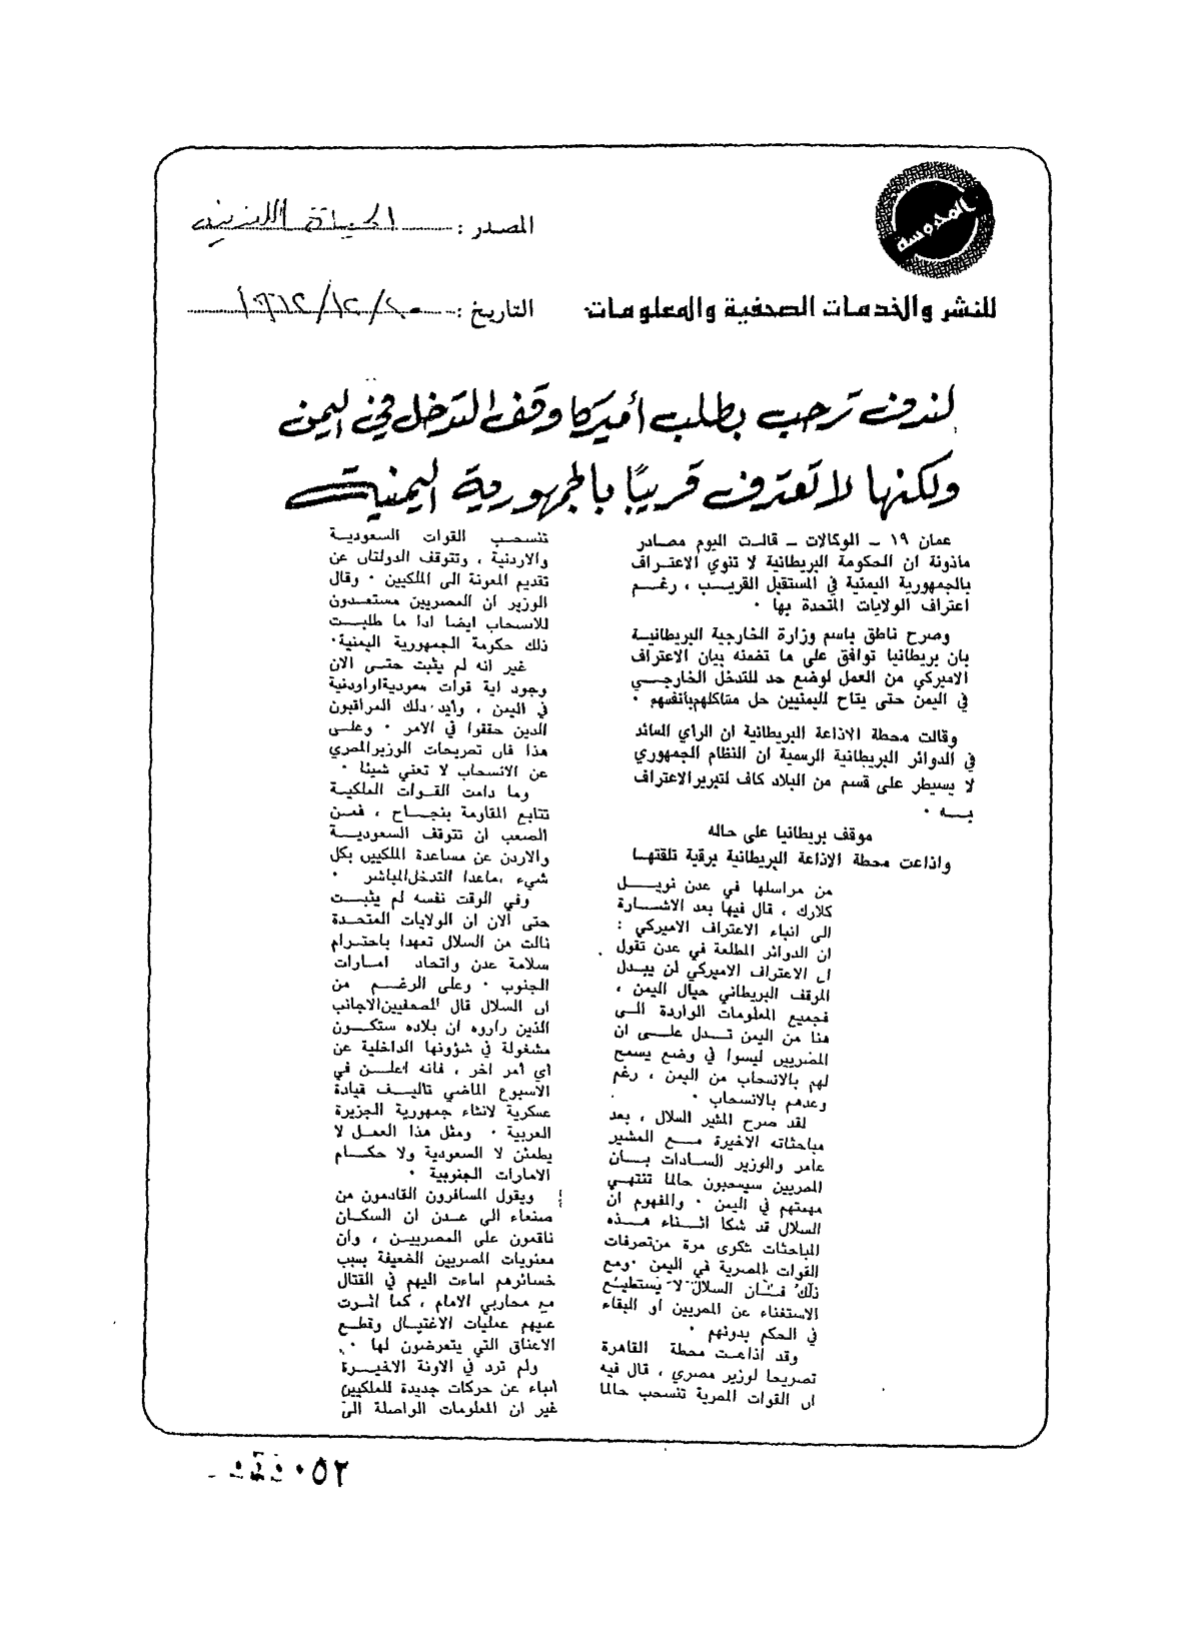 المحروسه
للنشر والخدمات الصحفية والمعلومات
المصدر : الحياة اللبنانية
التاريخ : ٢٠/١٢/١٩٦٢
لندن ترحب بطلب أميركا وقف التدخل في اليمن
ولكنها لا تعترف قريبًا بالجمهورية اليمنية
عمان ١٩ ـ الوكالات ـ قالت اليوم مصادر
ماذونة ان الحكومة البريطانية لا تنوي الاعتراف
بالجمهورية اليمنية في المستقبل القريب ، رغم
اعتراف الولايات المتحدة بها .
وصرح ناطق باسم وزارة الخارجية البريطانية
بان بريطانيا توافق على ما تضمنه بيان الاعتراف
الاميركي من العمل لوضع حد للتدخل الخارجي
في اليمن حتى يتاح لليمنيين حل مشاكلهم بانفسهم .
وقالت محطة الاذاعة البريطانية ان الراي السائد
في الدوائر البريطانية الرسمية ان النظام الجمهوري
لا يسيطر على قسم من البلاد كاف لتبرير الاعتراف
به .
موقف بريطانيا على حاله
واذاعت محطة الإذاعة البريطانية برقية تلقتها
من مراسلها في عدن نويل
كلارك ، قال فيها بعد الاشارة
الى انباء الاعتراف الاميركي :
ان الدوائر المطلعة في عدن تقول
ان الاعتراف الاميركي لن يبدل
الموقف البريطاني حيال اليمن ،
فجميع المعلومات الواردة الى
هنا من اليمن تدل على ان
المصريين ليسوا في وضع يسمح
لهم بالانسحاب من اليمن ، رغم
وعدهم بالانسحاب .
لقد صرح المشير السلال ، بعد
مباحثاته الاخيرة مع المشير
عامر والوزير السادات بان
المصريين سيسحبون حالما تنتهي
مهمتهم في اليمن . والمفهوم ان
السلال قد شكا اثناء هذه
المباحثات شكوى مرة من تصرفات
القوات المصرية في اليمن . ومع
ذلك فان السلال لا يستطيع
الاستغناء عن المصريين او البقاء
في الحكم بدونهم .
وقد اذاعت محطة القاهرة
تصريحا لوزير مصري ، قال فيه
ان القوات المصرية تنسحب حالما
تنسحب القوات السعودية
والاردنية ، وتتوقف الدولتان عن
تقديم المعونة الى الملكيين . وقال
الوزير ان المصريين مستعدون
للانسحاب ايضا اذا ما طلبت
ذلك حكومة الجمهورية اليمنية .
غير انه لم يثبت حتى الان
وجود اية قوات سعودية او اردنية
في اليمن ، وأيد ذلك المراقبون
الذين حققوا في الامر . وعلى
هذا فان تصريحات الوزير المصري
عن الانسحاب لا تعني شيئا .
وما دامت القوات الملكية
تتابع المقاومة بنجاح ، فمن
الصعب ان تتوقف السعودية
والاردن عن مساعدة الملكيين بكل
شيء ،ماعدا التدخل المباشر .
وفي الوقت نفسه لم يثبت
حتى الان ان الولايات المتحدة
نالت من السلال تعهدا باحترام
سلامة عدن واتحاد امارات
الجنوب . وعلى الرغم من
ان السلال قال للصحفيين الاجانب
الذين زاروه ان بلاده ستكون
مشغولة في شؤونها الداخلية عن
أي امر اخر ، فانه اعلن في
الاسبوع الماضي تاليف قيادة
عسكرية لانشاء جمهورية الجزيرة
العربية . ومثل هذا العمل لا
يطمئن لا السعودية ولا حكام
الامارات الجنوبية .
ويقول المسافرون القادمون من
صنعاء الى عدن ان السكان
ناقمون على المصريين ، وان
معنويات المصريين الضعيفة بسبب
خسائرهم اساءت اليهم في القتال
مع محاربي الامام ، كما اثرت
عليهم عمليات الاغتيال وقطع
الاعناق التي يتعرضون لها .
ولم ترد في الاونة الاخيرة
أنباء عن حركات جديدة للملكيين
غير ان المعلومات الواصلة الى